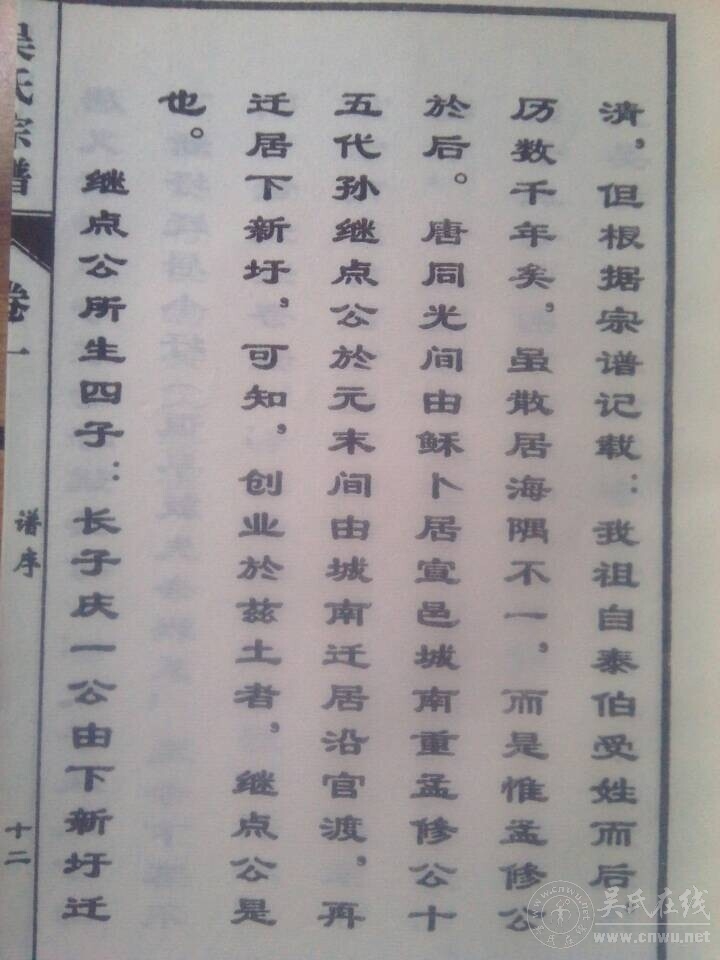 清，但根据宗谱记载：我祖自泰伯受姓而后，
历数千年矣，虽散居海隅不一，而是惟孟修公
於后。唐同光间由稣卜居宣邑城南重孟修公十
五代孙继点公於元末间由城南迁居沿官渡，再
迁居下新圩，可知，创业於兹土者，继点公是
也。
继点公所生四子：长子庆一公由下新圩迁
吴氏宗谱
卷一
谱序
十二
吴氏在线
www.cnwu.net